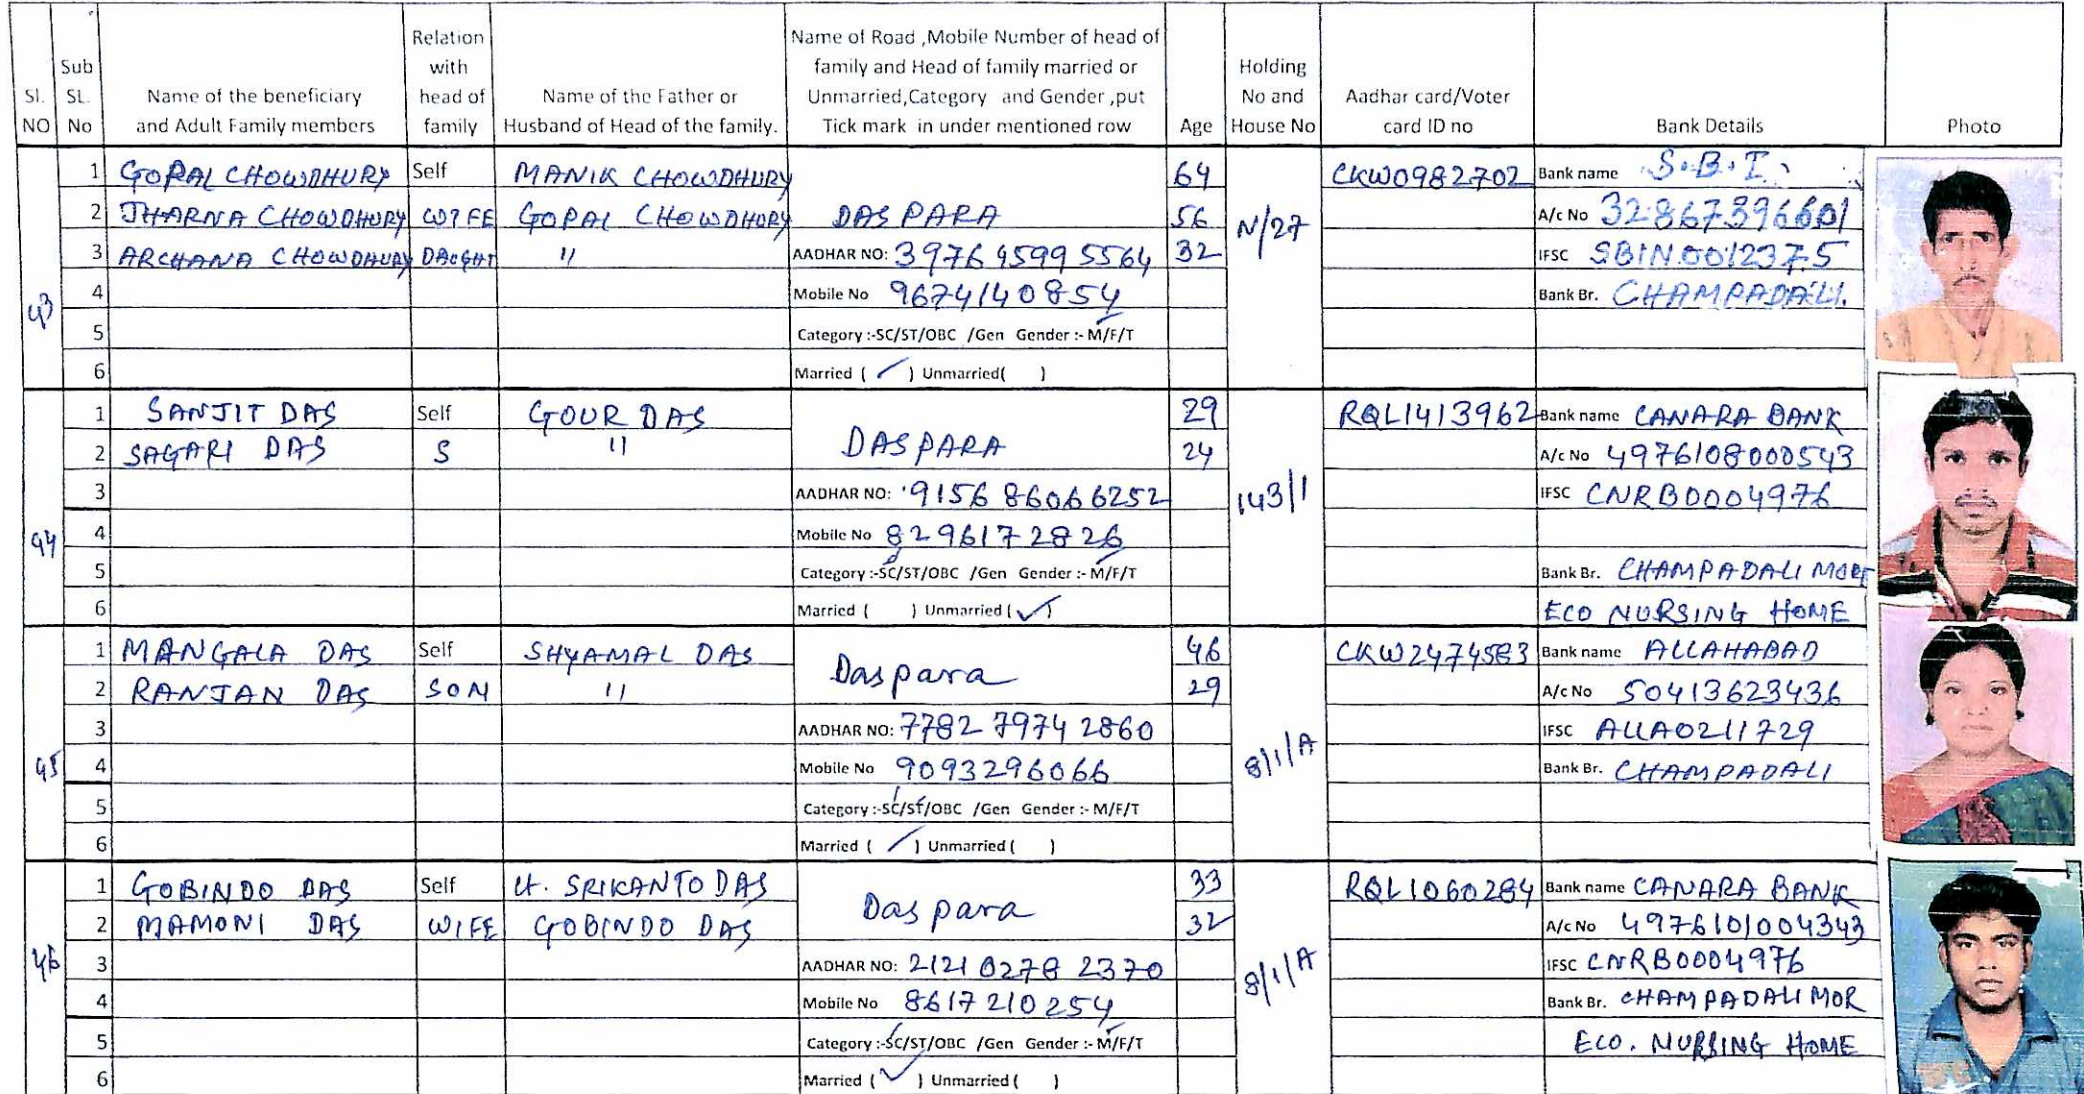 Sl. NO | Sub SL. No | Name of the beneficiary and Adult Family members | Relation with head of family | Name of the Father or Husband of Head of the family. | Name of Road ,Mobile Number of head of family and Head of family married or Unmarried,Category and Gender ,put Tick mark in under mentioned row | Age | Holding No and House No | Aadhar card/Voter card ID no | Bank Details | Photo
43
1 GOPAL CHOWDHURY Self MANIK CHOWDHURY 64 CKW0982702 Bank name S.B.I.
2 JHARNA CHOWDHURY WIFE GOPAL CHOWDHURY DAS PARA 56 N/27 A/c No 32867396601
3 ARCHANA CHOWDHURY DAUGHT " AADHAR NO: 3976 4599 5564 32 IFSC SBIN0012375
4 Mobile No 9674140854 Bank Br. CHAMPADALI.
5 Category :-SC/ST/OBC /Gen Gender :- M/F/T
6 Married ( ✓ ) Unmarried( )
44
1 SANJIT DAS Self GOUR DAS 29 RQL1413962 Bank name CANARA BANK
2 SAGARI DAS S " DASPARA 24 A/c No 4976108000543
3 AADHAR NO: 9156 8606 6252 143/1 IFSC CNRB0004976
4 Mobile No 8296172826
5 Category :-SC/ST/OBC /Gen Gender :- M/F/T Bank Br. CHAMPADALI MORE
6 Married ( ) Unmarried ( ✓ ) ECO NURSING HOME
45
1 MANGALA DAS Self SHYAMAL DAS 46 CKW2474583 Bank name ALLAHABAD
2 RANJAN DAS SON " Daspara 29 A/c No 50413623436
3 AADHAR NO: 7782 7974 2860 IFSC ALLA0211729
4 Mobile No 9093296066 8/1/A Bank Br. CHAMPADALI
5 Category :-SC/ST/OBC /Gen Gender :- M/F/T
6 Married ( ✓ ) Unmarried ( )
46
1 GOBINDO DAS Self Lt. SRIKANTO DAS 33 RQL1060284 Bank name CANARA BANK
2 MAMONI DAS WIFE GOBINDO DAS Das para 32 A/c No 4976101004343
3 AADHAR NO: 2121 0278 2370 8/1/A IFSC CNRB0004976
4 Mobile No 8617210254 Bank Br. CHAMPADALI MOR
5 Category :-SC/ST/OBC /Gen Gender :- M/F/T ECO. NURSING HOME
6 Married ( ✓ ) Unmarried ( )